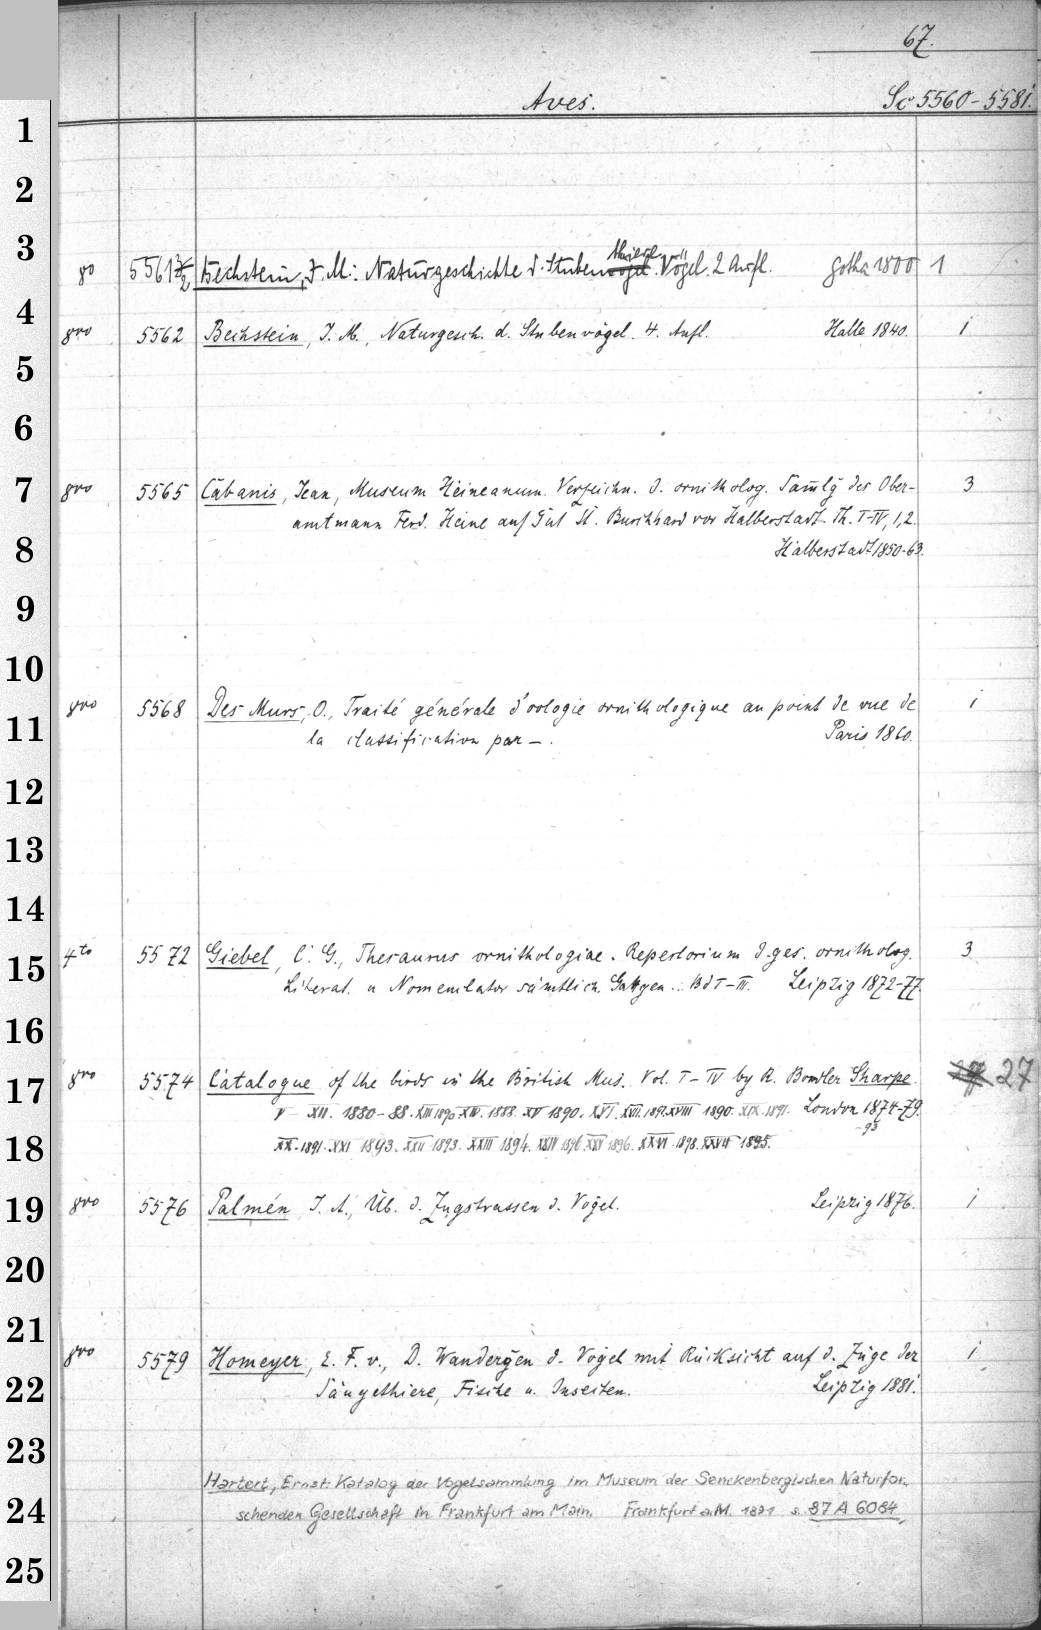 67.
Aves. Sc 5560-5581.
1
2
3
80 5561 2/2 Bechstein, J. M.: Naturgeschichte d. Stubenvögel. Thiere Vögel. 2 Aufl. Gotha 1800 1
4
8vo 5562 Bechstein, J. M., Naturgesch. d. Stubenvögel. 4. Aufl. Halle 1840. 1
5
6
7
8vo 5565 Cabanis, Jean, Museum Heineanum. Verzeichn. d. ornitholog. Samlg des Ober- 3
amtmann Ferd. Heine auf Gut St. Burchhard vor Halberstadt. Th. I-IV, 1,2.
8
Halberstadt 1850-63.
9
10
8vo 5568 Des Murs, O., Traité générale d'oologie ornithologique au point de vue de 1
11
la classification par —. Paris 1860.
12
13
14
4to 5572 Giebel, C. G., Thesaurus ornithologiae. Repertorium d. ges. ornitholog. 3
15
Literat. u Nomenclator sämtlich. Gattgen... Bd I-III. Leipzig 1872-77.
16
8vo 5574 Catalogue of the birds in the British Mus. Vol. I-IV by R. Bowdler Sharpe. 27
17
V - XII. 1880-88. XIII 1890 XIV. 1888. XV 1890. XVI. XVII. 1892. XVIII 1890. XIX. 1891. London 1874-79.
-93
18
XX. 1891. XXI 1893. XXII 1893. XXIII 1894. XXIV 1896. XXV 1896. XXVI 1898. XXVII 1895.
19
8vo 5576 Palmén J. A., Üb. d. Zugstrassen d. Vögel. Leipzig 1876. 1
20
21
8vo 5579 Homeyer, E. F. v., D. Wandergen d. Vögel mit Rücksicht auf d. Züge der 1
22
Säugethiere, Fische u. Insecten. Leipzig 1881.
23
Hartert, Ernst: Katalog der Vogelsammlung im Museum der Senckenbergischen Naturfor-
24
schenden Gesellschaft in Frankfurt am Main. Frankfurt a.M. 1891 s. 87 A 6064
25